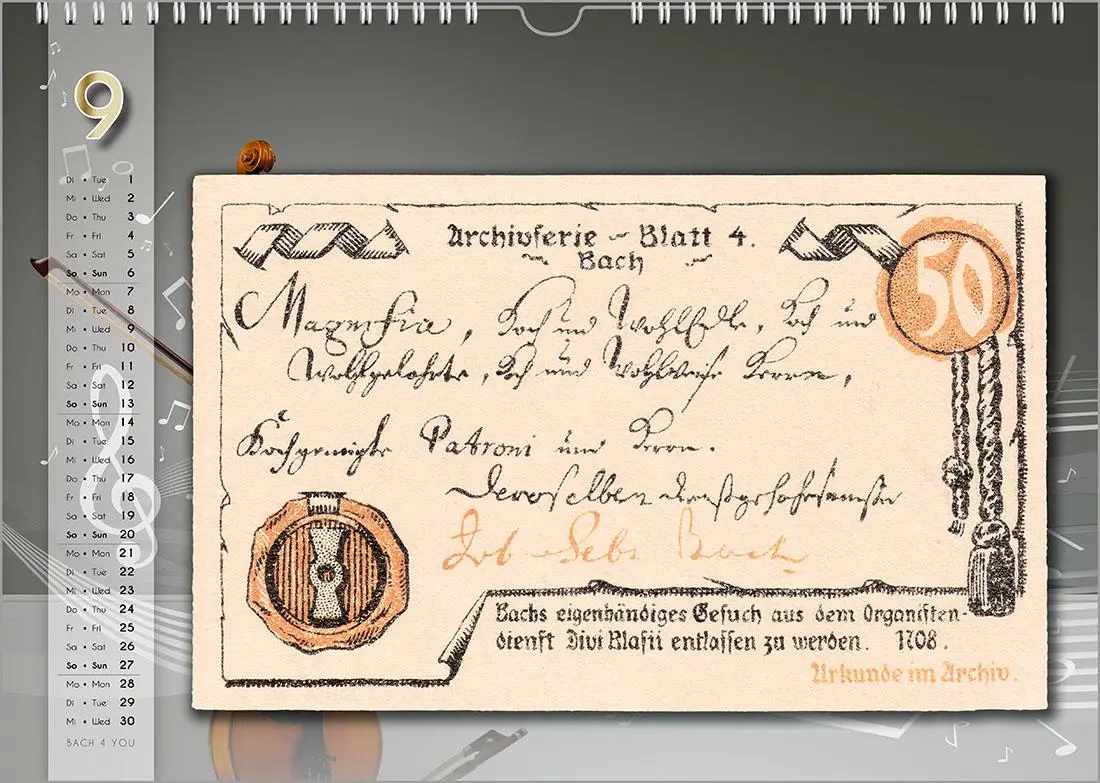 9
Di • Tue 1
Mi • Wed 2
Do • Thu 3
Fr • Fri 4
Sa • Sat 5
So • Sun 6
Mo • Mon 7
Di • Tue 8
Mi • Wed 9
Do • Thu 10
Fr • Fri 11
Sa • Sat 12
So • Sun 13
Mo • Mon 14
Di • Tue 15
Mi • Wed 16
Do • Thu 17
Fr • Fri 18
Sa • Sat 19
So • Sun 20
Mo • Mon 21
Di • Tue 22
Mi • Wed 23
Do • Thu 24
Fr • Fri 25
Sa • Sat 26
So • Sun 27
Mo • Mon 28
Di • Tue 29
Mi • Wed 30
BACH 4 YOU
Archivserie – Blatt 4.
Bach
50
Hoch und WohlEdle, Hoch und
Wohlgelahrte, Hoch und Wohlweise Herren,
Hochgeneigte Patroni und Herren.
Deroselben
Joh Sebs Bach
Bachs eigenhändiges Gesuch aus dem Organisten-
dienst Divi Blasii entlassen zu werden. 1708.
Urkunde im Archiv.